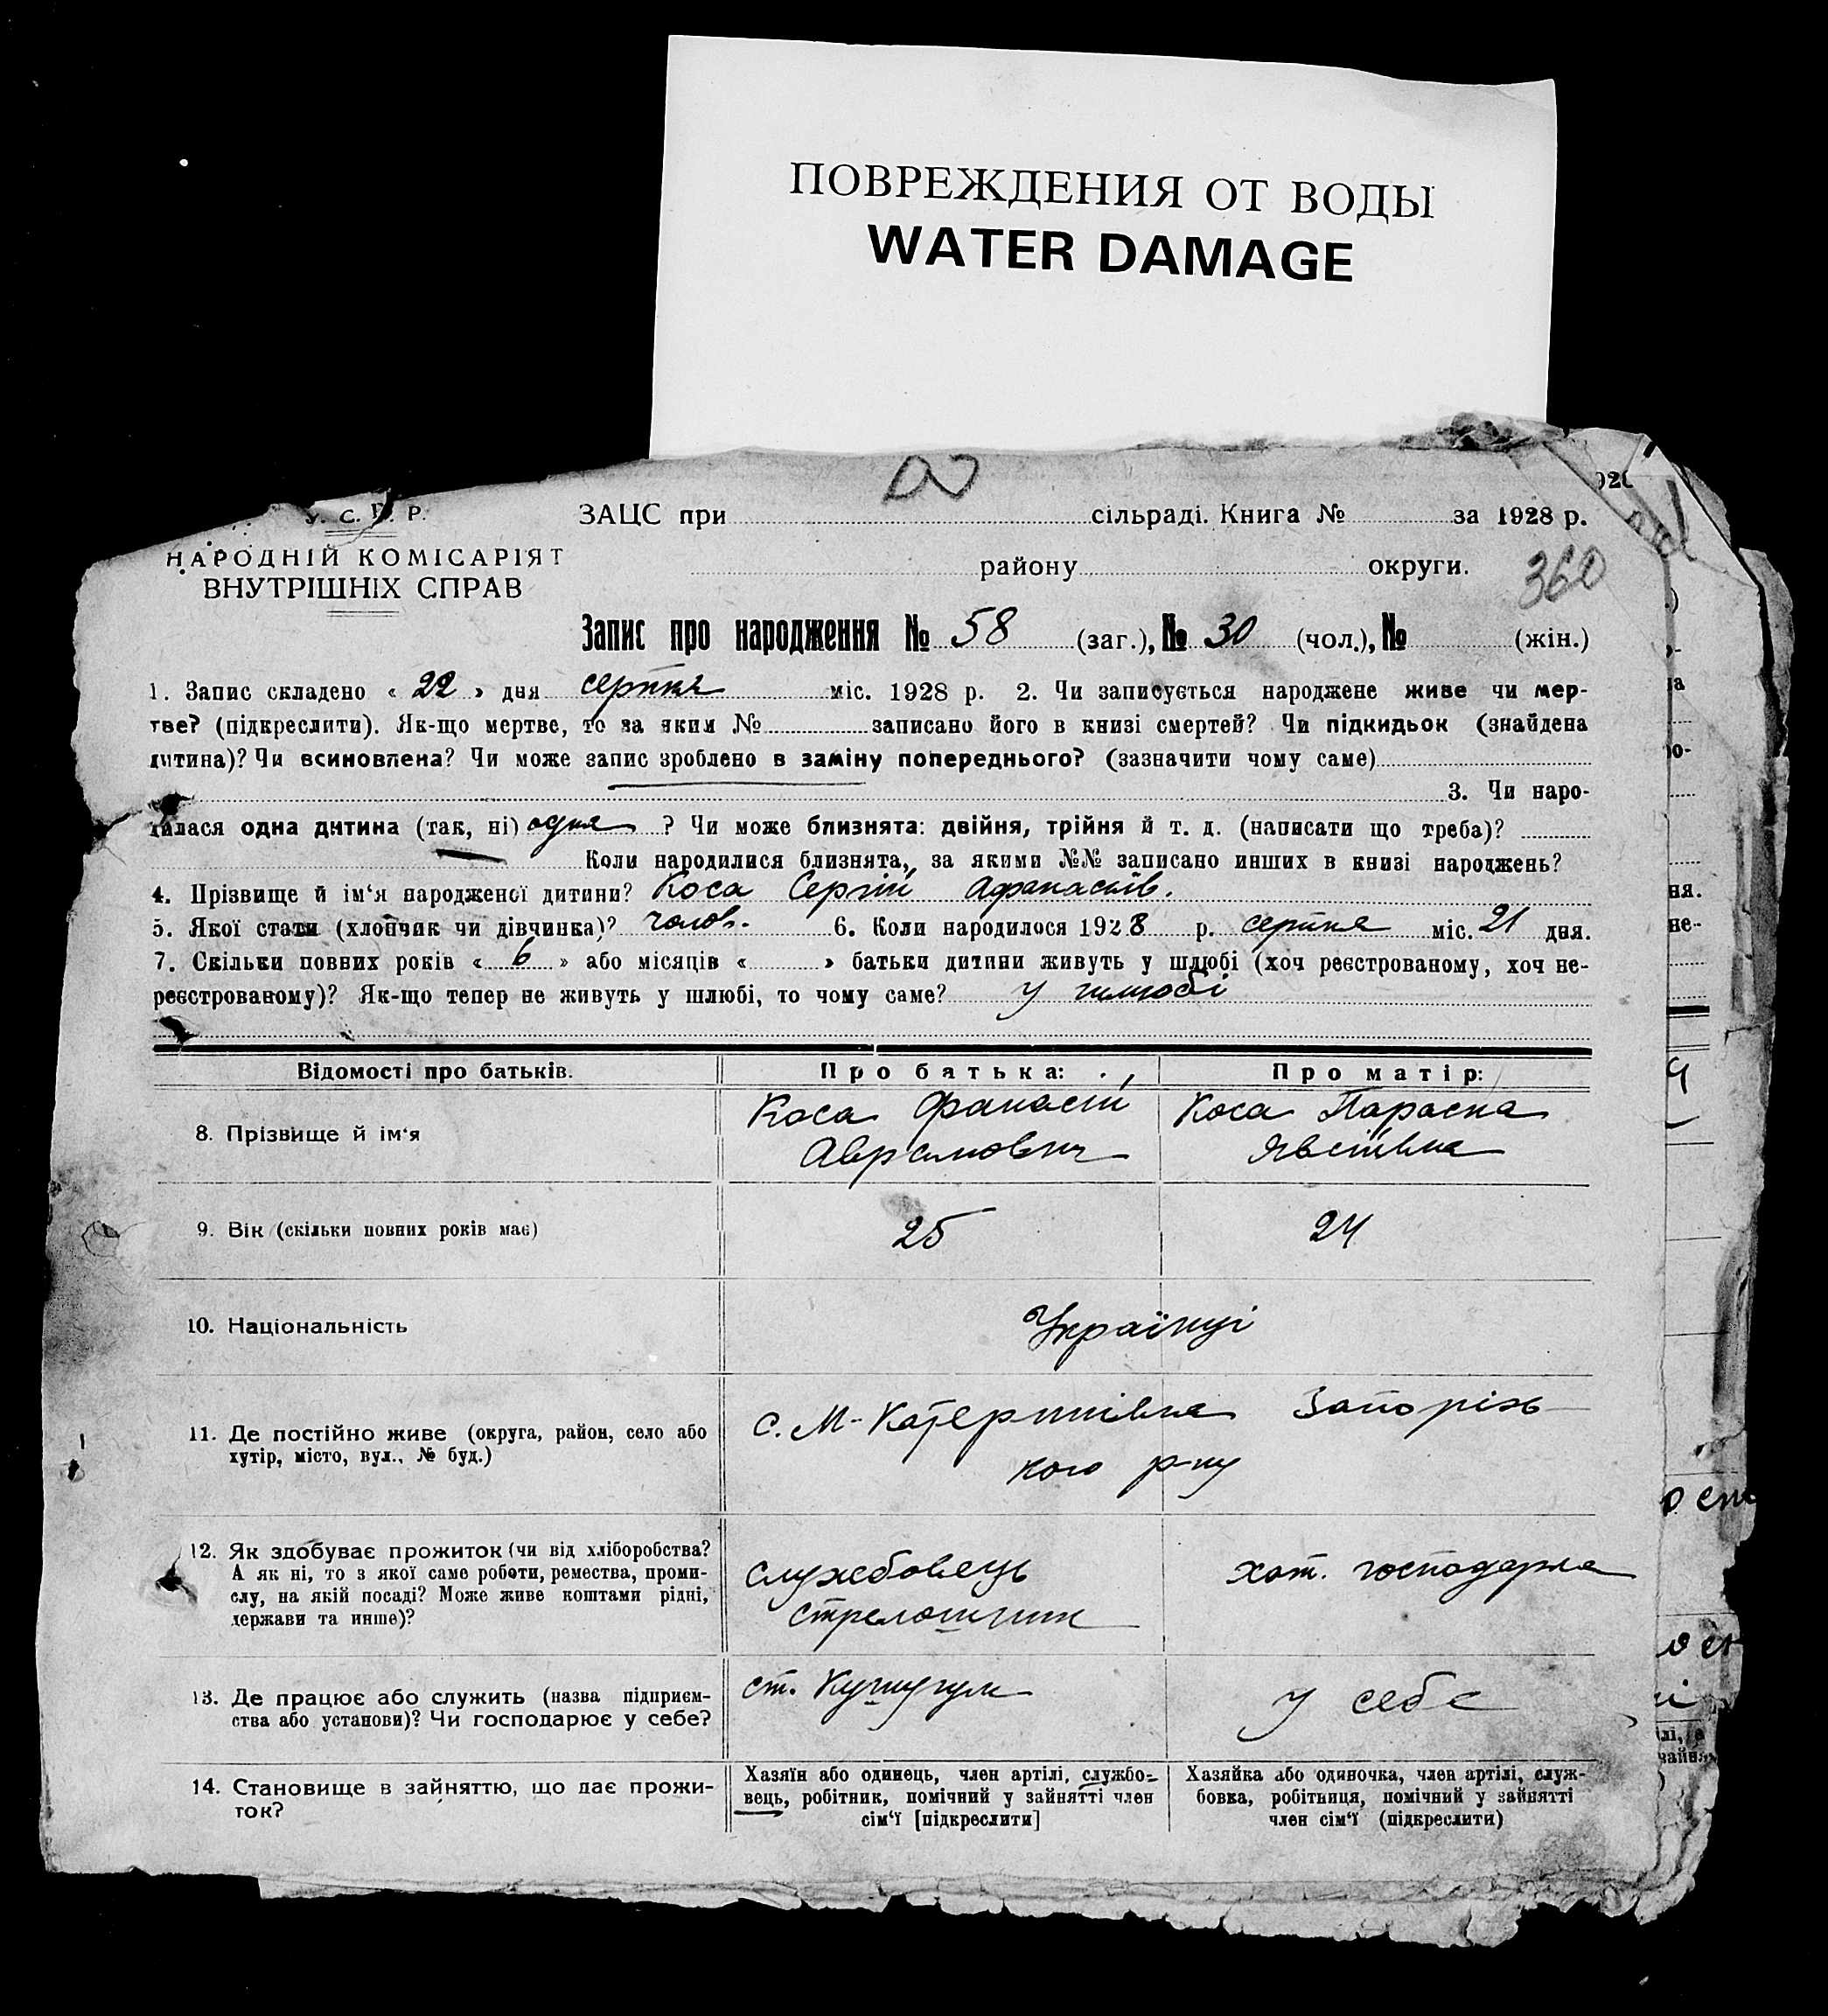 ПОВРЕЖДЕНИЯ ОТ ВОДЫ
WATER DAMAGE
У. С. Р. Р.
ЗАЦС при сільраді. Книга № за 1928 р.
НАРОДНІЙ КОМІСАРІЯТ
ВНУТРІШНІХ СПРАВ
району округи.
360
Запис про народження № 58 (заг.), № 30 (чол.), № (жін.)
1. Запис складено « 22 » дня серпня міс. 1928 р. 2. Чи записується народжене живе чи мер-
тве? (підкреслити). Як-що мертве, то за яким № записано його в книзі смертей? Чи підкидьок (знайдена
дитина)? Чи всиновлена? Чи може запис зроблено в заміну попереднього? (зазначити чому саме)
3. Чи наро-
дилася одна дитина (так, ні) одна ? Чи може близнята: двійня, трійня й т. д. (написати що треба)?
Коли народилися близнята, за якими №№ записано инших в книзі народжень?
4. Прізвище й ім‘я народженої дитини? Коса Сергій Афанасіїв.
5. Якої стати (хлопчик чи дівчинка)? чолов. 6. Коли народилося 1928 р. серпня міс. 21 дня.
7. Скільки повних років « 6 » або місяців « » батьки дитини живуть у шлюбі (хоч реєстрованому, хоч не-
реєстрованому)? Як-що тепер не живуть у шлюбі, то чому саме? у шлюбі
Відомості про батьків. Про батька: Про матір:
8. Прізвище й ім‘я Коса Фанасій Коса Параска
Аврамович Явсіївна
9. Вік (скільки повних років має) 25 24
10. Національність Українці
11. Де постійно живе (округа, район, село або с. М-Катеринівка Запорізь-
хутір, місто, вул., № буд.) кого р-ну
12. Як здобуває прожиток (чи від хліборобства?
А як ні, то з якої саме роботи, ремества, проми- службовець хат. господарка
слу, на якій посаді? Може живе коштами рідні, стрелошник
держави та инше)?
13. Де працює або служить (назва підприєм- ст. Кушугум у себе
ства або установи)? Чи господарює у себе?
14. Становище в зайняттю, що дає прожи-
ток?
Хазяїн або одинець, член артілі, службо-
вець, робітник, помічний у зайнятті член
сім‘ї [підкреслити]
Хазяйка або одиночка, член артілі, служ-
бовка, робітниця, помічний у зайнятті
член сім‘ї (підкреслити)